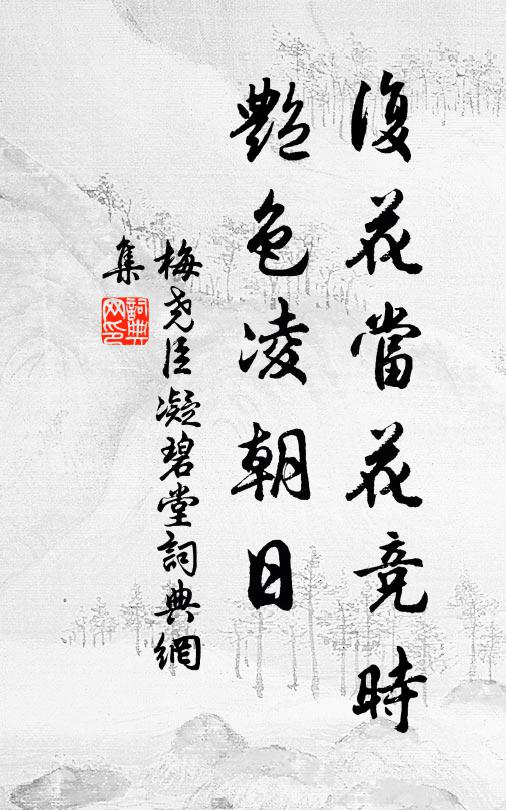 復花當花竞時
艷色凌朝日
梅尧臣凝碧堂詞典網
集
詞典
网印